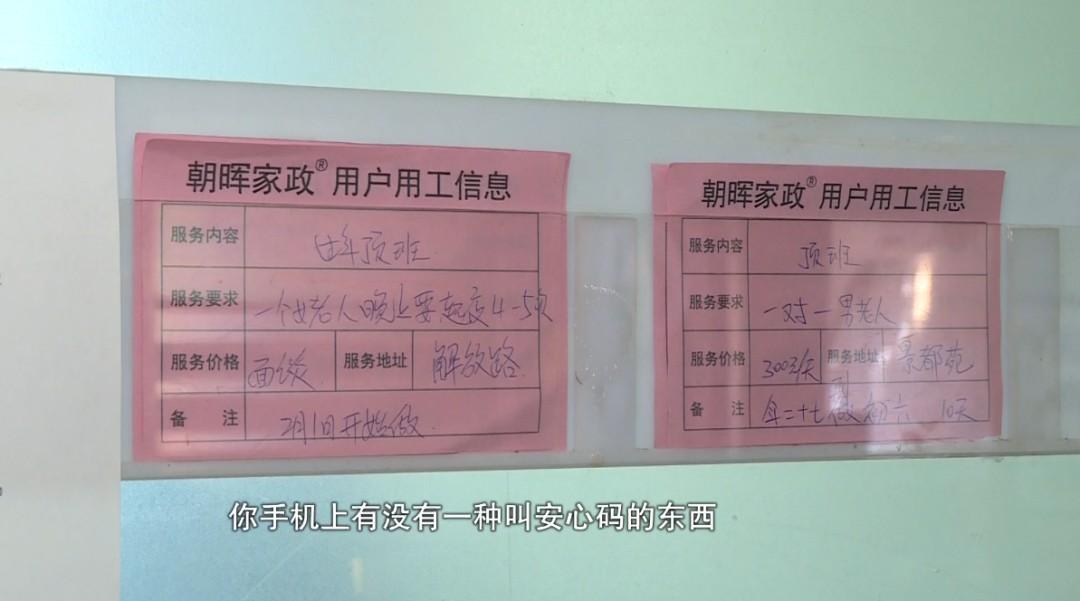 朝晖家政® 用户用工信息
服务内容 过年顶班
服务要求 一个女老人晚上要起夜4-5次
服务价格 面谈 服务地址 解放路
备 注 2月1日开始做
朝晖家政® 用户用工信息
服务内容 顶班
服务要求 一对一男老人
服务价格 300元/天 服务地址 景都苑
备 注 年二十七做到初六 10天
你手机上有没有一种叫安心码的东西